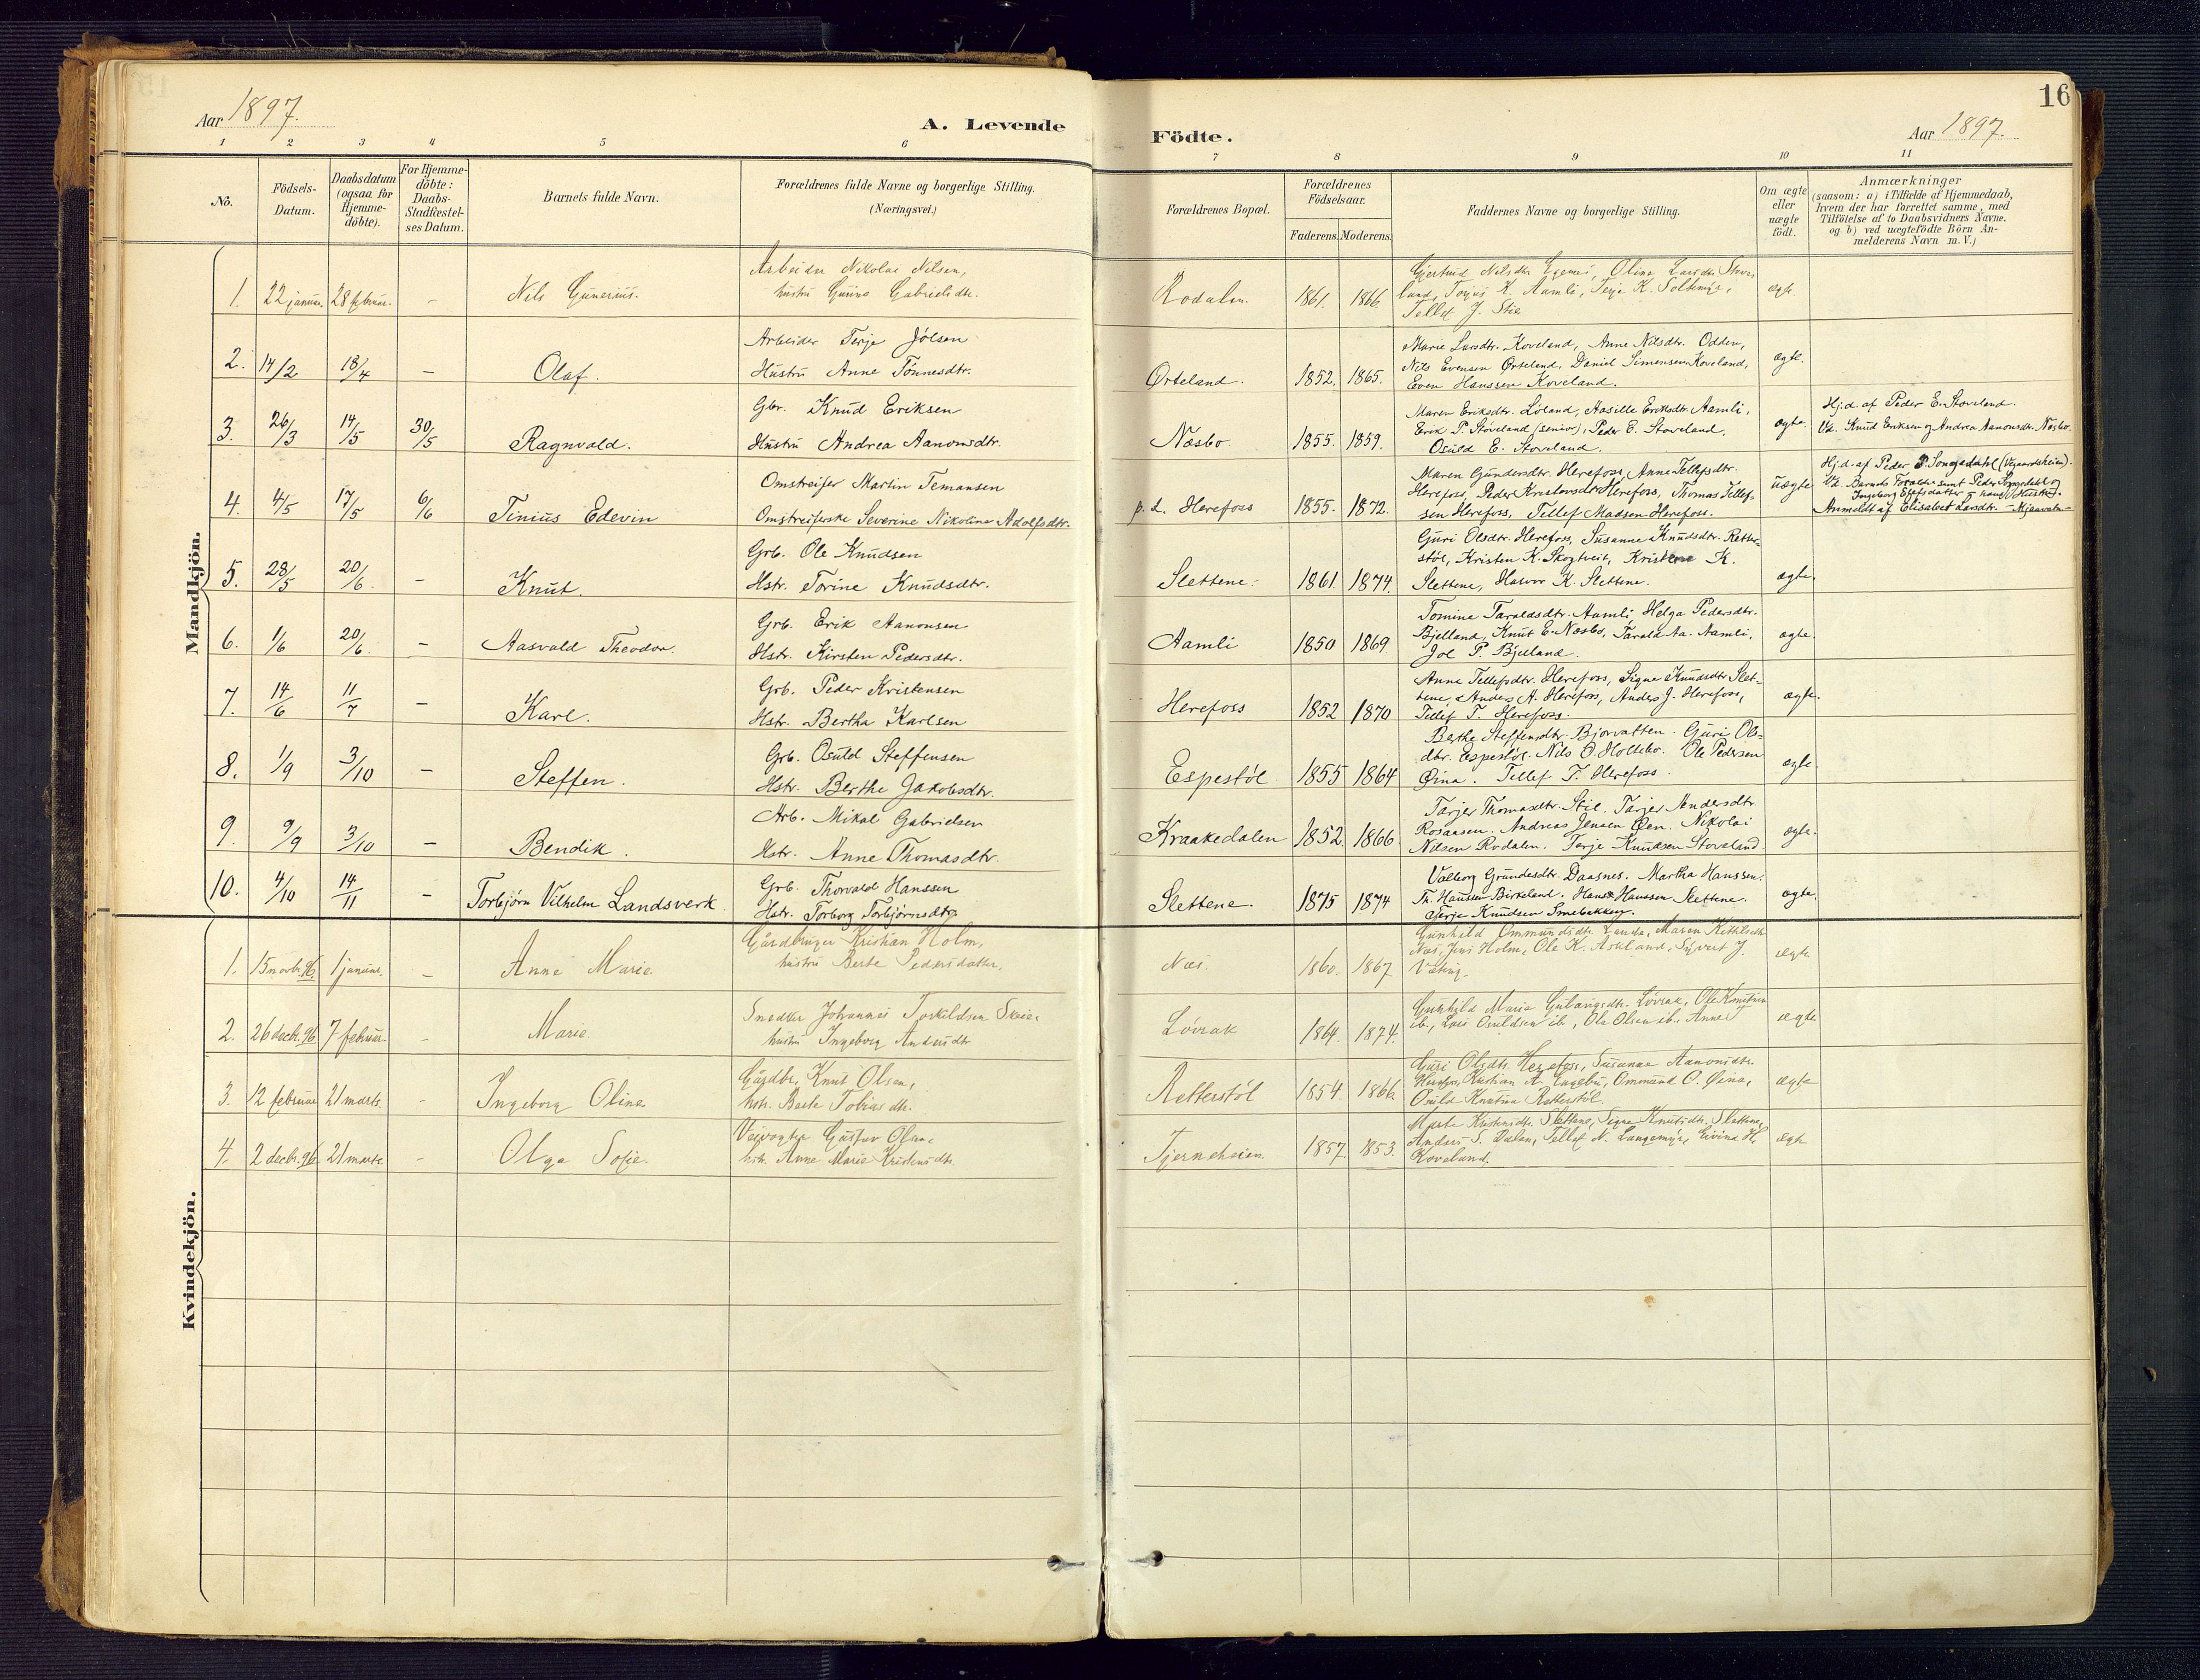 16
Aar 1897.
A. Levende Födte.
Aar 1897.
1 2 3 4 5 6 7 8 9 10 11
No.
Födsels-Datum.
Daabsdatum (ogsaa for Hjemme-döbte).
For Hjemme-döbte: Daabs-Stadfæstel-ses Datum.
Barnets fulde Navn.
Forældrenes fulde Navne og borgerlige Stilling.
(Næringsvei.)
Forældrenes Bopæl.
Forældrenes Födselsaar.
Faderens. Moderens.
Faddernes Navne og borgerlige Stilling.
Om ægte eller uægte födt.
Anmærkninger
(saasom: a) i Tilfælde af Hjemmedaab, hvem der har forrettet samme, med Tilföielse af to Daabsvidners Navne. og b) ved uægtefödte Börn An-melderens Navn m.V.)
Mandkjön.
1. 22 januar 28 februar. – Nils Gunerius.
Arbeider Nikolai Nilsen,
hustru Gunna Gabrielsdtr.
Rodalen. 1861. 1866
Gjertrud Nilsdtr. Oline Larsdtr. Stove-
land, K. Aamli, Terje K.
Tellef J. Stie
ægte.
2. 14/2 18/4 – Olaf.
Arbeider Terje Jölsen
Hustru Anne Tönnesdtr.
Ørteland. 1852. 1865.
Marie Larsdtr. Koveland, Anne Nilsdtr. Odden,
Nils Evensen Ørteland, Daniel Simensen Koveland,
Even Hanssen Koveland.
ægte.
3. 26/3 14/5 30/5 Ragnvald.
Gbr. Knud Eriksen
Hustru Andrea Aanonsdtr.
Næsbo 1855. 1859.
Maren Eriksdtr. Löland, Aasille Eriksdtr. Aamli,
Erik P. Stoveland (senior), Peder E. Stoveland,
Osuld E. Stoveland.
ægte
Hj.d. af Peder E. Stoveland.
Vd. Knud Eriksen og Andrea Aanonsdtr. Næsbo.
4. 4/5 17/5 6/6 Tinius Edevin
Omstreifer Martin Temansen
Omstreiferske Severine Nikoline Adolfsdtr.
p. t. Herefoss 1855. 1872.
Maren Gundersdtr. Herefoss, Anne Tellefsdtr.
Herefoss, Peder Herefoss, Thomas Tellef-
sen Herefoss, Tellef Madsen Herefoss.
uægte
Hj.d. af Peder P. Songedahl (Vegaardsheien).
Vd. Barnets Forældre samt Peder Songedahl og
Ingeborg hans Hustru.
Anmeldt af Elisabet Larsdtr.
5. 28/5 20/6. – Knut.
Grb. Ole Knudsen
Hstr. Torine Knudsdtr.
Slettene. 1861 1874.
Guri Olsdtr. Herefoss, Susanne Knudsdtr. Retter-
stöl, Kristen K. Skogtveit, Kristene K.
Slettene, Hasvor K. Slettene.
ægte.
6. 1/6 20/6. – Aasvald Theodor.
Grb. Erik Aanonsen
Hstr. Kirsten Pedersdtr.
Aamli 1850 1869
Tomine Taraldsdtr. Aamli, Helga Pedersdtr.
Bjelland, Knut E. Næsbo, Tarald Aa. Aamli,
Jol P. Bjelland.
ægte.
7. 14/6 11/7 – Karl.
Grb. Peder Kristensen
Hstr. Bertha Karlsen
Herefoss 1852 1870
Anne Tellefsdtr. Herefoss, Signe Knudsdtr Slet-
tene, Anders A. Herefoss, Anders J. Herefoss,
Tellef T. Herefoss.
ægte.
8. 1/9 3/10 – Steffen.
Grb. Osuld Steffensen
Hstr. Berthe Jakobsdtr.
Espestöl 1855 1864
Berthe Steffensdtr. Bjorvatten. Guri Ols-
dtr. Espestöl. Nils O. Holtebo. Ole Pedersen
Øina. Tellef T. Herefoss.
ægte
9. 9/9 3/10 – Bendik.
Arb. Mikal Gabrielsen
Hstr. Anne Thomasdtr.
Kraakedalen 1852. 1866.
Tarjer Thomasdtr. Stie. Tarjer Andersdtr
Rosaasen. Andreas Jensen Øen. Nikolai
Nilsen Rodalen. Terje Knudsen Stoveland
ægte.
10. 4/10 14/11 – Torbjörn Vilhelm Landsverk
Grb. Thorvald Hanssen
Hstr. Torborg Torbjörnsdtr.
Slettene. 1875 1874
Valborg Grundesdtr. Daasnes. Martha Hanssen.
Th. Hanssen Birkeland. Hans Hanssen Slettene.
Terje Knudsen Smebakken.
ægte.
Kvindekjön.
1. 15 novbr. 96 1 januar. – Anne Marie
Gårdbruger Kristian Holm,
hustru Berte Pedersdatter,
Næs. 1860. 1867
Gunhild Ommundsdtr. Maren
Næs, Jens Holm, Ole K. Askland, Syvert J.
ægte
2. 26 decbr. 96 7 februar. – Marie.
Smedker Johannes Torkildsen
hustru Ingeborg Andersdtr
Lövrak 1864. 1874.
Gunhild Marie Lövrak, Ole
ib., Lars Osuldsen ib., Ole Olsen ib. Anne T
ægte
3. 12 februar 21 marts. – Ingeborg Oline
Gårdbr. Knut Olsen,
hstr. Berte Tobiasdtr.
Retterstöl 1854. 1866.
Guri Olsdtr. Herefoss, Susanne Aanonsdtr.
Herefoss, Kristian A. Engebu, Ommund O. Øina,
Osuld Retterstöl.
ægte
4. 2 decbr. 96 21 marts. – Olga Sofie.
Veivogter Gustav Olsen,
hstr. Anne Marie Kristensdtr.
Tjerneheien 1857. 1853.
Marte Kristensdtr. Slettene, Signe Knutsdtr. Slettene,
Anders S. Dalen, Tellef N. Langemyr, Eivind H.
Koveland.
ægte